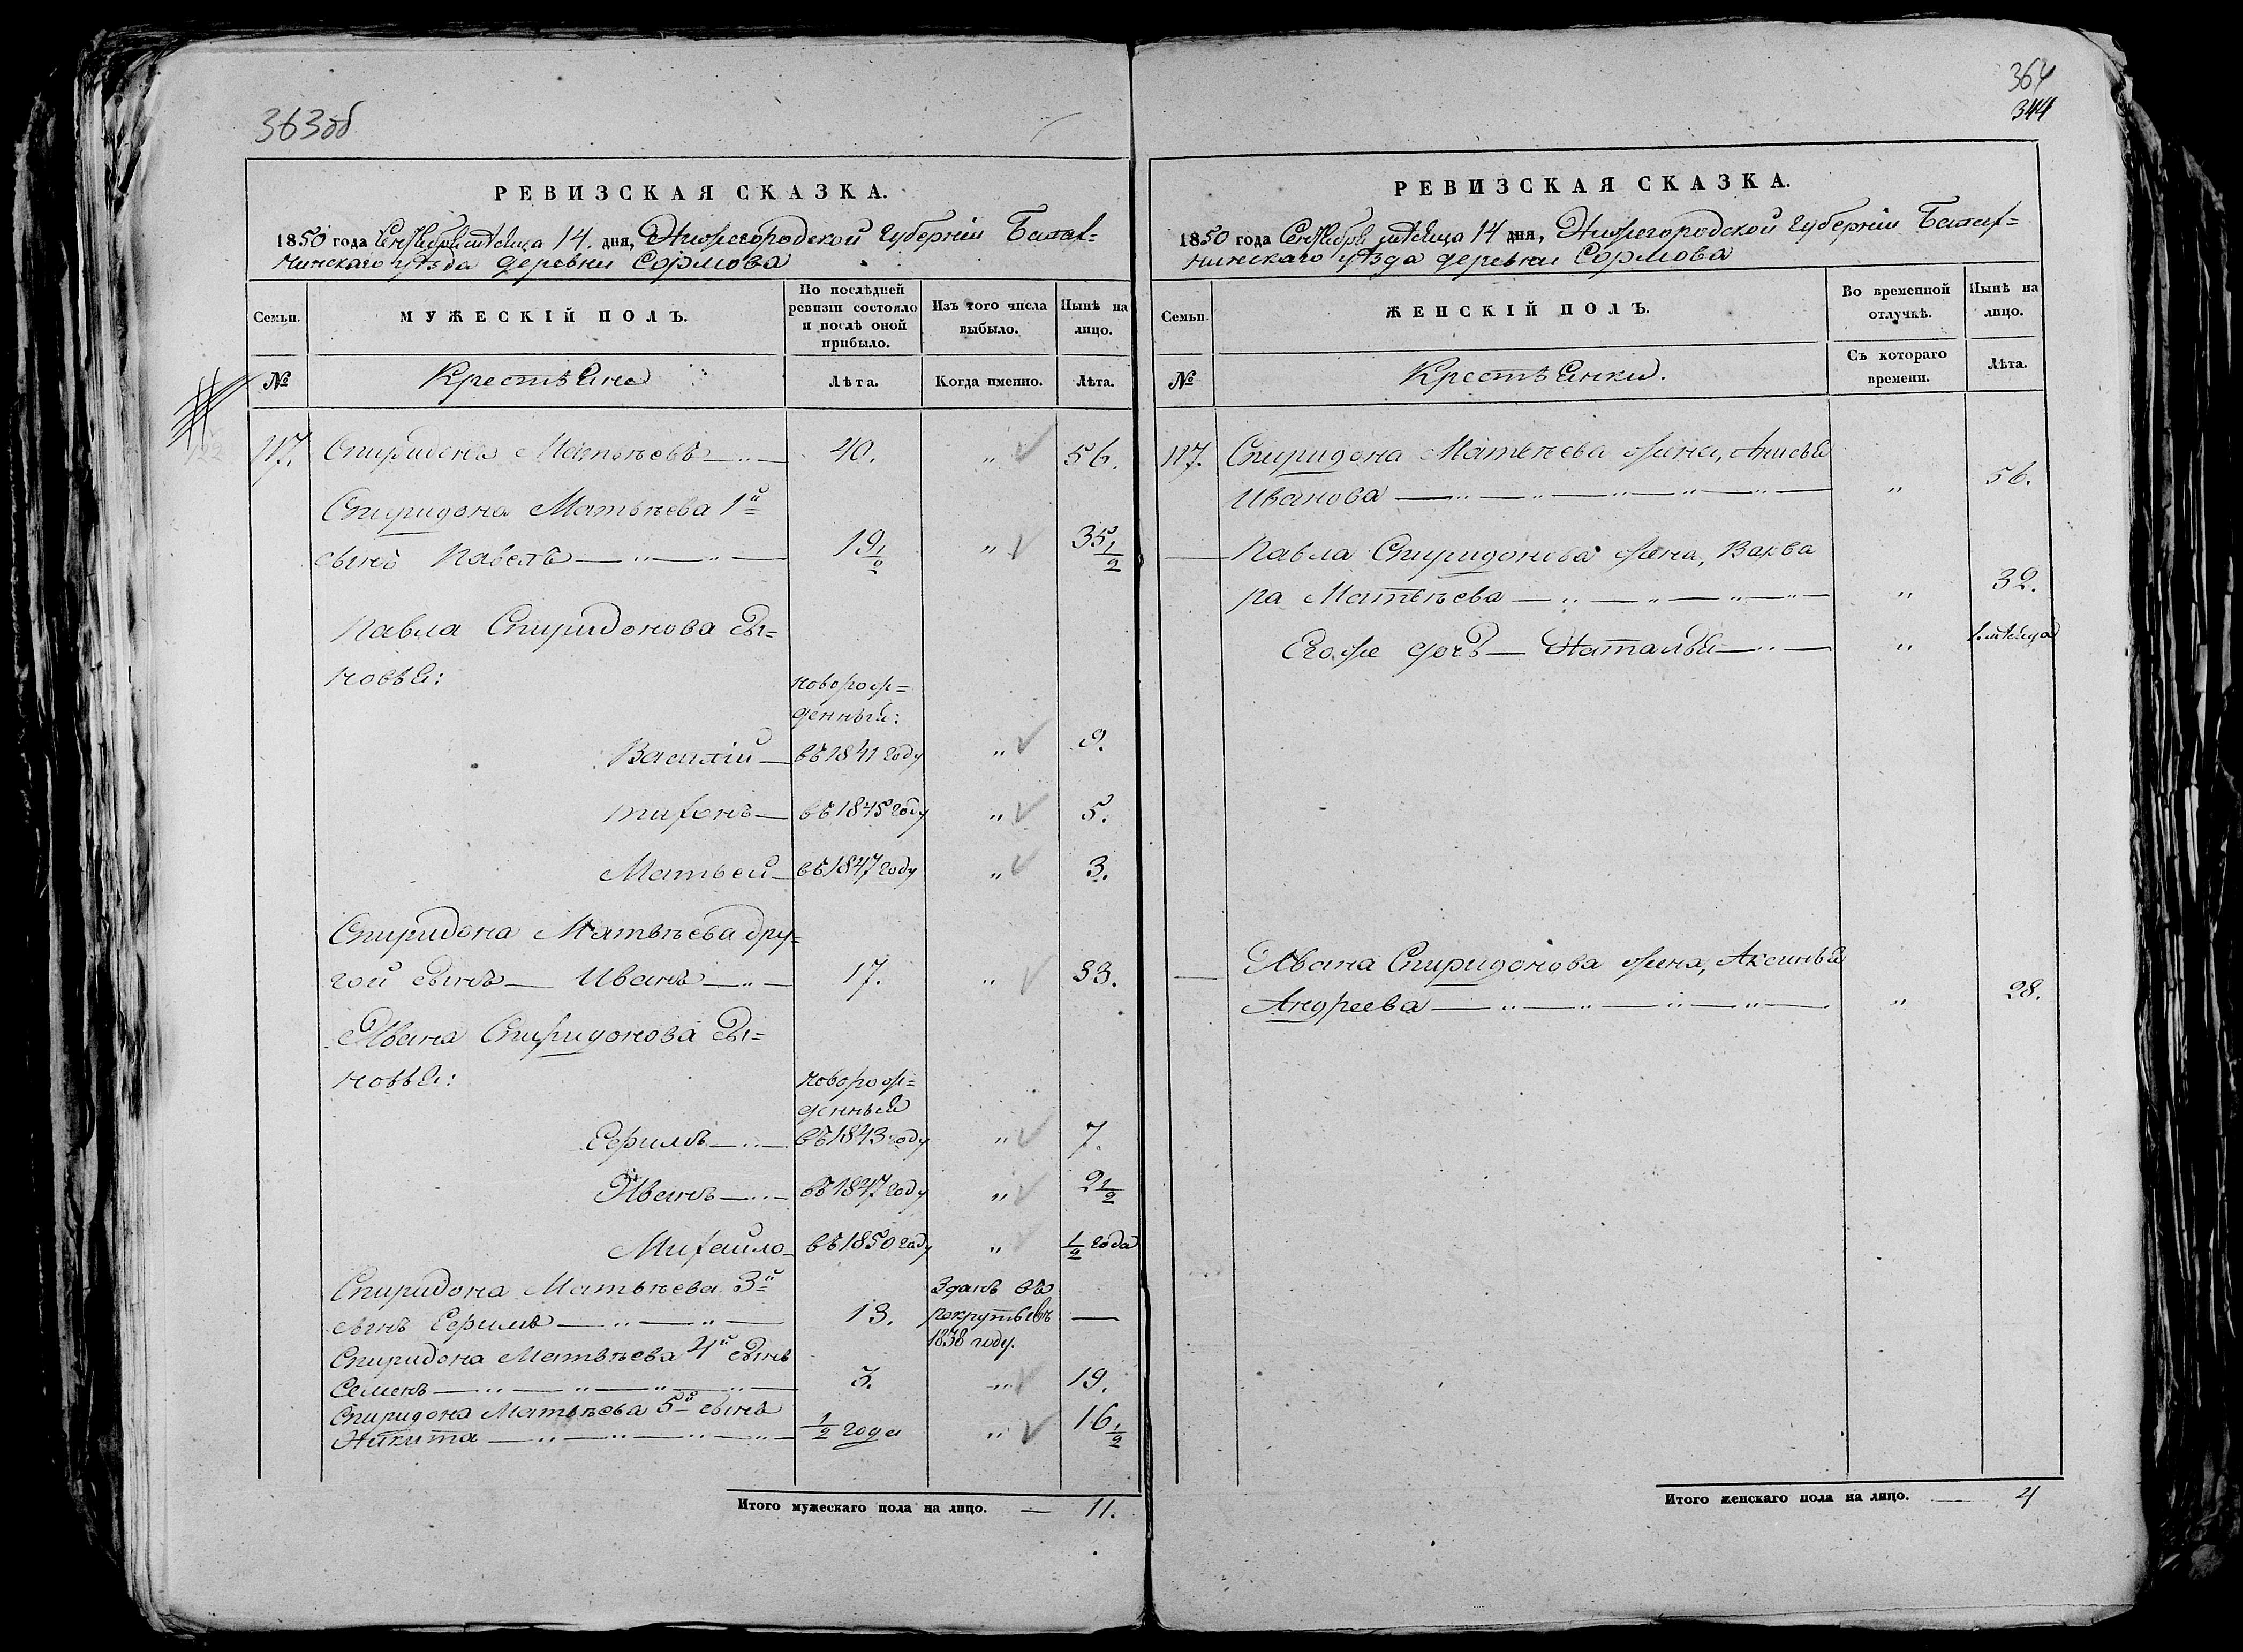 363об
РЕВИЗСКАЯ СКАЗКА.
1850 года Сентября мѣсяца 14. дня, Нижегородской Губерніи Балах=
нинскаго уѣзда деревни Сормова
Семьи.
МУЖЕСКІЙ ПОЛЪ.
По послѣдней ревизіи состояло и послѣ оной прибыло.
Изъ того числа выбыло.
Нынѣ на лицо.
№
Крестьяне
Лѣта.
Когда именно.
Лѣта.
122
117. Спиридонъ Матвѣевъ — 40. " 56.
Спиридона Матвѣева 1й
сынъ Павелъ — 19 1/2 " 35 1/2
Павла Спиридонова сы=
новья:
новорож=
денныи:
Василій — въ 1841 году " 9.
Тихонъ — въ 1845 году " 5.
Матвей — въ 1847 году " 3.
Спиридона Матвѣева дру=
гой сынъ — Иванъ — 17. " 33.
Ивана Спиридонова сы=
новья:
новорож=
денныя
Ефимъ — въ 1843 году " 7.
Иванъ — въ 1847 году " 2 1/2
Михайло — въ 1850 году " 1/2 года
Спиридона Матвѣева 3й
сынъ Ефимъ — 13. Зданъ въ рекруты въ 1838 году. —
Спиридона Матвѣева 4й сынъ
Семенъ — 3. " 19.
Спиридона Матвѣева 5й сынъ
Никита — 1/2 года " 16 1/2
Итого мужескаго пола на лицо. — 11.
364
344
РЕВИЗСКАЯ СКАЗКА.
1850 года Сентября мѣсяца 14 дня, Нижегородской Губерніи Балах=
нинскаго уѣзда деревни Сормова
Семьи.
ЖЕНСКІЙ ПОЛЪ.
Во временной отлучкѣ.
Нынѣ на лицо.
№
Крестьянки.
Съ котораго времени.
Лѣта.
117. Спиридона Матвѣева жена, Анисья
Иванова — " 56.
— Павла Спиридонова жена, Варва
ра Матвѣева — " 32.
Его же дочь — Наталья — " 1. мѣсяца
— Ивана Спиридонова жена, Аксинья
Андреева — " 28.
Итого женскаго пола на лицо. — 4